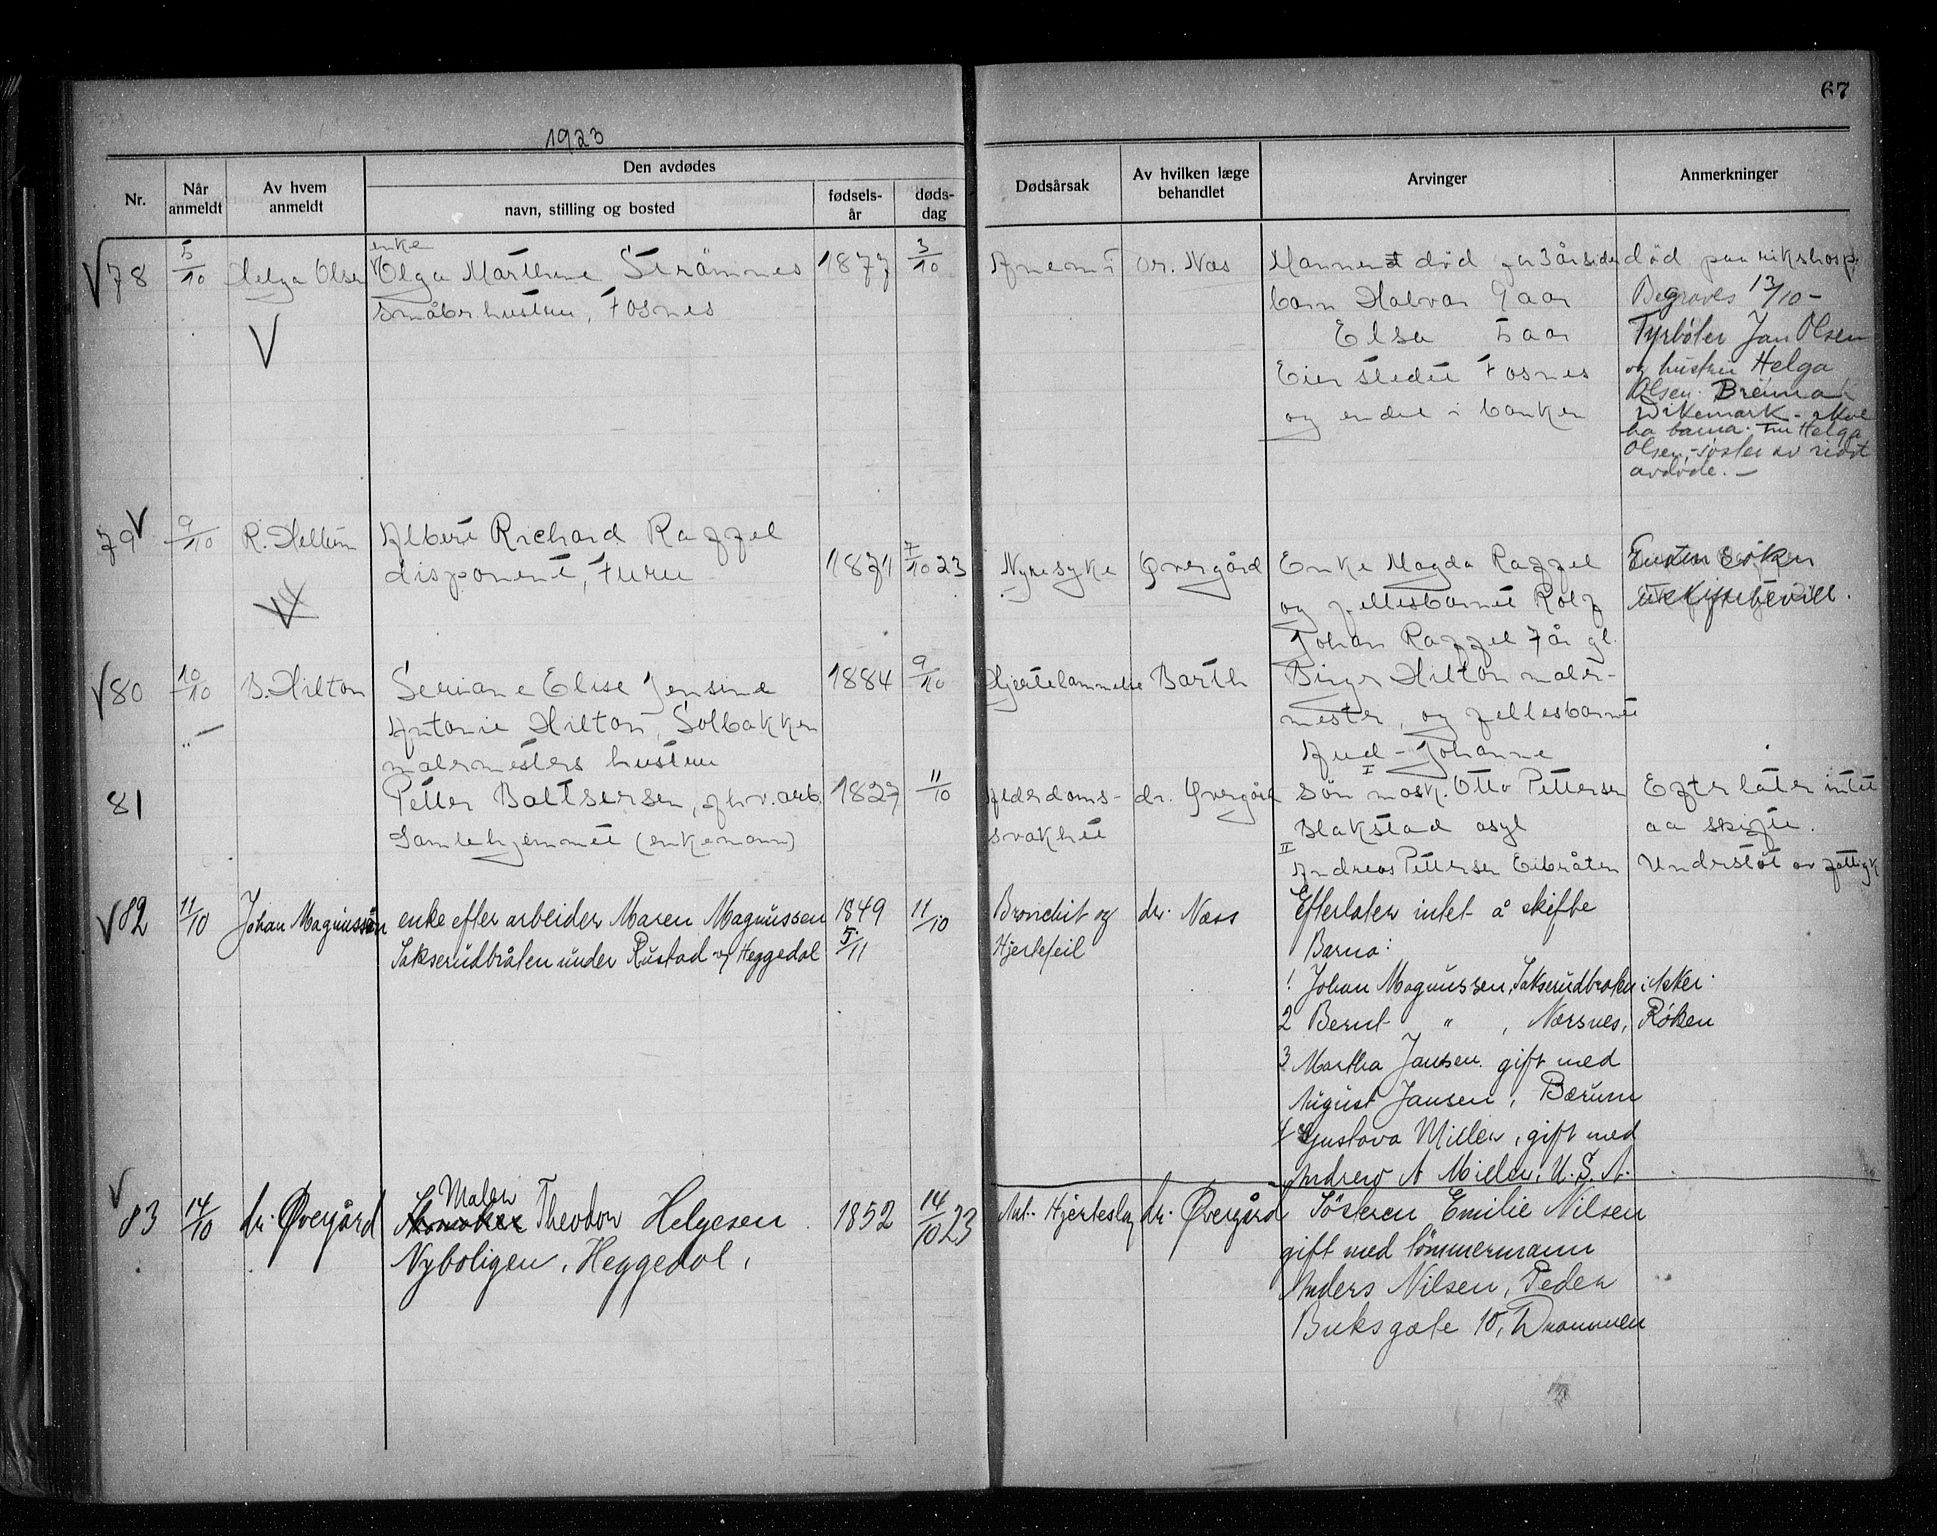 67
1923
Nr.
Når anmeldt
Av hvem anmeldt
Den avdødes
navn, stilling og bosted
fødsels-år
døds-dag
Dødsårsak
Av hvilken læge behandlet
Arvinger
Anmerkninger
78
5/10
Helga Olsen
enke
Olga Marthine Strømnes
småbr. hustru, Fosnes
1877
3/10
Anemi
dr. Næs
Mannen død for 3 år siden
barn Halvar 9 aar
Elsa 5 aar
Eier stedet Fosnes
og endel i banken
død paa rikshosp.
Begraves 13/10 -
Fyrbøter Jan Olsen
og hustru Helga
Olsen
Dikemark - skal
ha barna. Fru Helga
Olsen, - søster av
avdøde. -
79
9/10
R. Hellum
Albert Richard Raffel
disponent, Furu
1871
7/10 23
Nyresyke
Øvergård
Enke Magda Raffel
og fellesbarnet Rolf
Johan Raffel 7 år gl.
Enken søker
uskiftebevill.
80
10/10
B. Hilton
Seriane Elise Jensine
Antonie Hilton, Solbakken
malermesters hustru
1884
9/10
Hjertelammelse
Barth
Birger Hilton maler-
mester, og fellesbarnet
Aud-Johanne
81
" -
Petter Baltsersen, fhv. arb.
Gamlehjemmet (enkemann)
1827
11/10
Alderdoms-
svakhet
dr. Øvergård
I
Søn mask. Otto Pettersen
Blakstad asyl
II
Andreas Pettersen Eibråten
Efterlater intet
aa skifte.
Understøt. av fattigk
82
11/10
Johan Magnussen
enke efter arbeider Maren Magnussen
Sakserudbråten under Rustad pr Heggedal
1849
5/11
11/10
Bronchit og
Hjertefeil
dr. Næss
Efterlater intet å skifte
Barna:
1 Johan Magnussen, Sakserudbråten i Asker.
2 Bernt " , Nærsnes, Røken
3 Martha Jansen gift med
August Jansen, Bærum
4 Gustava Miller, gift med
Andrew A Miller, U.S.A.
83
14/10
dr. Øvergård
Maler
Skomaker Theodor Helgesen
Nyboligen, Heggedal,
1852
14/10 23
Ant. Hjerteslag
dr. Øvergård
Søsteren Emilie Nilsen
gift med tømmermann
Anders Nilsen, Peder
Buksgate 10, Drammen